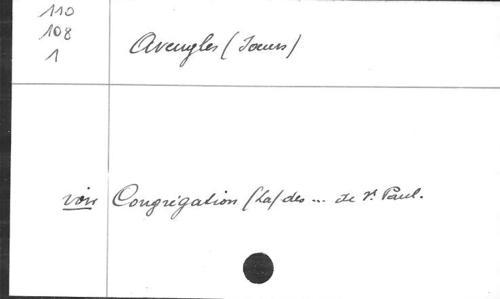 110
108
1
Aveugles (Soeurs)
voir Congrégation (La) des ... de St Paul.